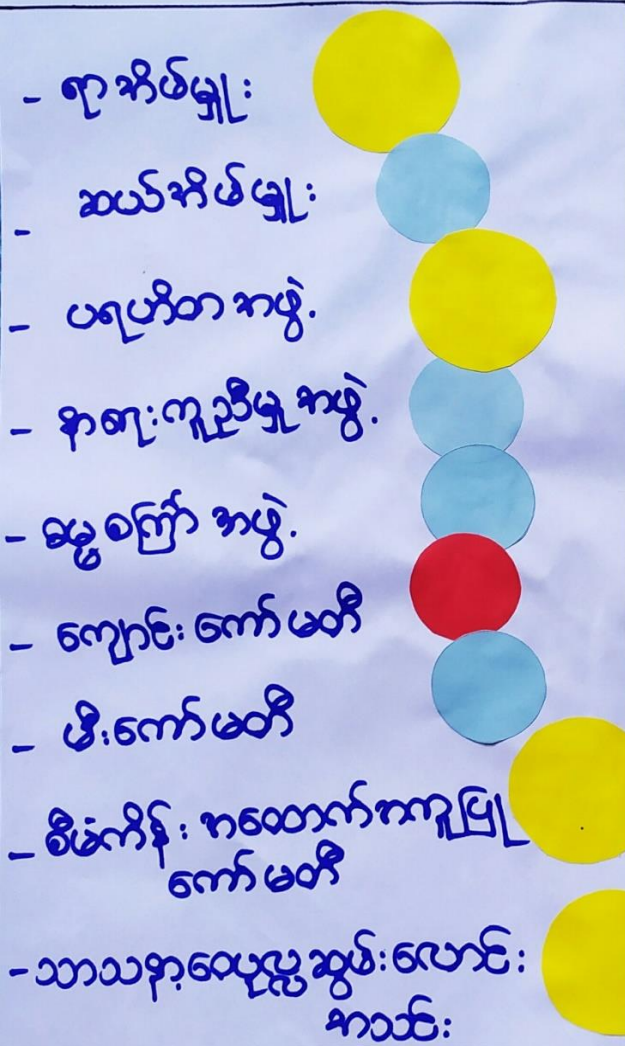 - ရာအိမ်မှူး
- ဆယ်အိမ်မှူး
- ပရဟိတအဖွဲ့
- နာရေးကူညီမှုအဖွဲ့
- ဓမ္မစကြာ်အဖွဲ့
- ကျောင်းကော်မတီ
- မီးကော်မတီ
- စီမံကိန်းအထောက်အကူပြု
ကော်မတီ
- သာသနာ့ဝေပုလ္လဆွမ်းလောင်း
အသင်း